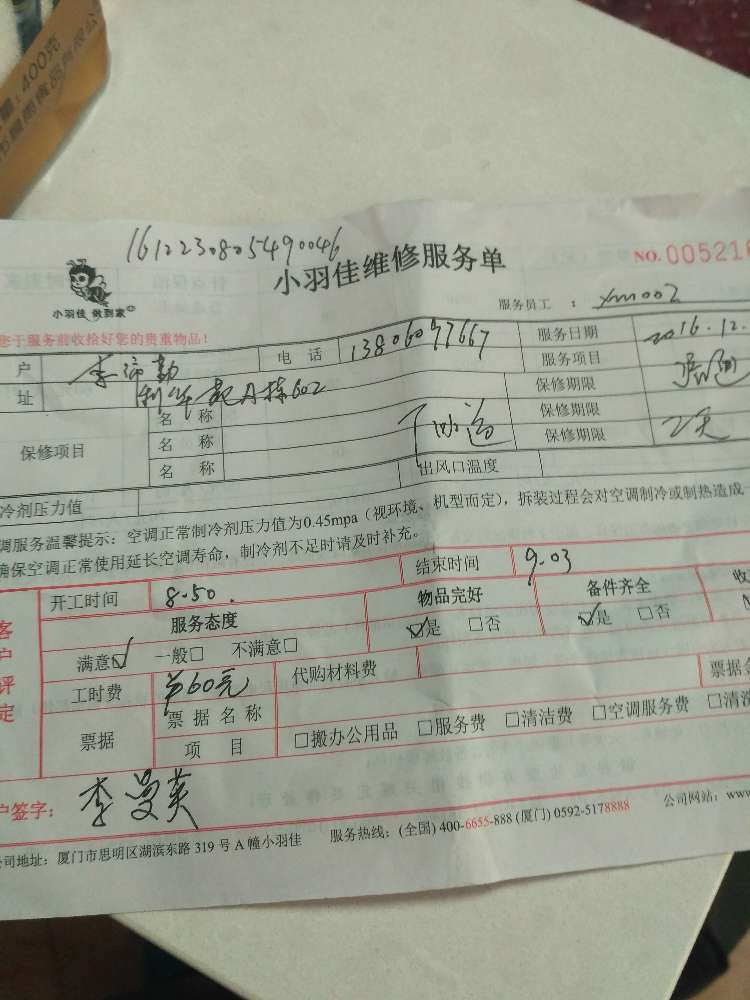 量:400克
市夏商食品有限公
1612230805490046
小羽佳维修服务单
NO.005216
小羽佳 做到家
服务员工 : xm002
您于服务前收拾好您的贵重物品!
户 李 勤 电 话 13806097667 服务日期 2016.12.
址 利华 丹栋602 服务项目
保修项目 名 称 保修期限
名 称 下水道 保修期限
名 称 保修期限 2天
冷剂压力值 出风口温度
调服务温馨提示:空调正常制冷剂压力值为0.45mpa(视环境、机型而定),拆装过程会对空调制冷或制热造成一
确保空调正常使用延长空调寿命,制冷剂不足时请及时补充。
客户评定
开工时间 8.50. 结束时间 9.03
服务态度 物品完好 备件齐全 收
满意☑ 一般□ 不满意□ ☑是 □否 ☑是 □否
工时费 60元 代购材料费
票据 票据名称 票据金
项 目 □搬办公用品 □服务费 □清洁费 □空调服务费 □清洗
户签字: 李曼英
公司地址:厦门市思明区湖滨东路319号A幢小羽佳 服务热线:(全国) 400-6655-888 (厦门) 0592-5178888 公司网站:www